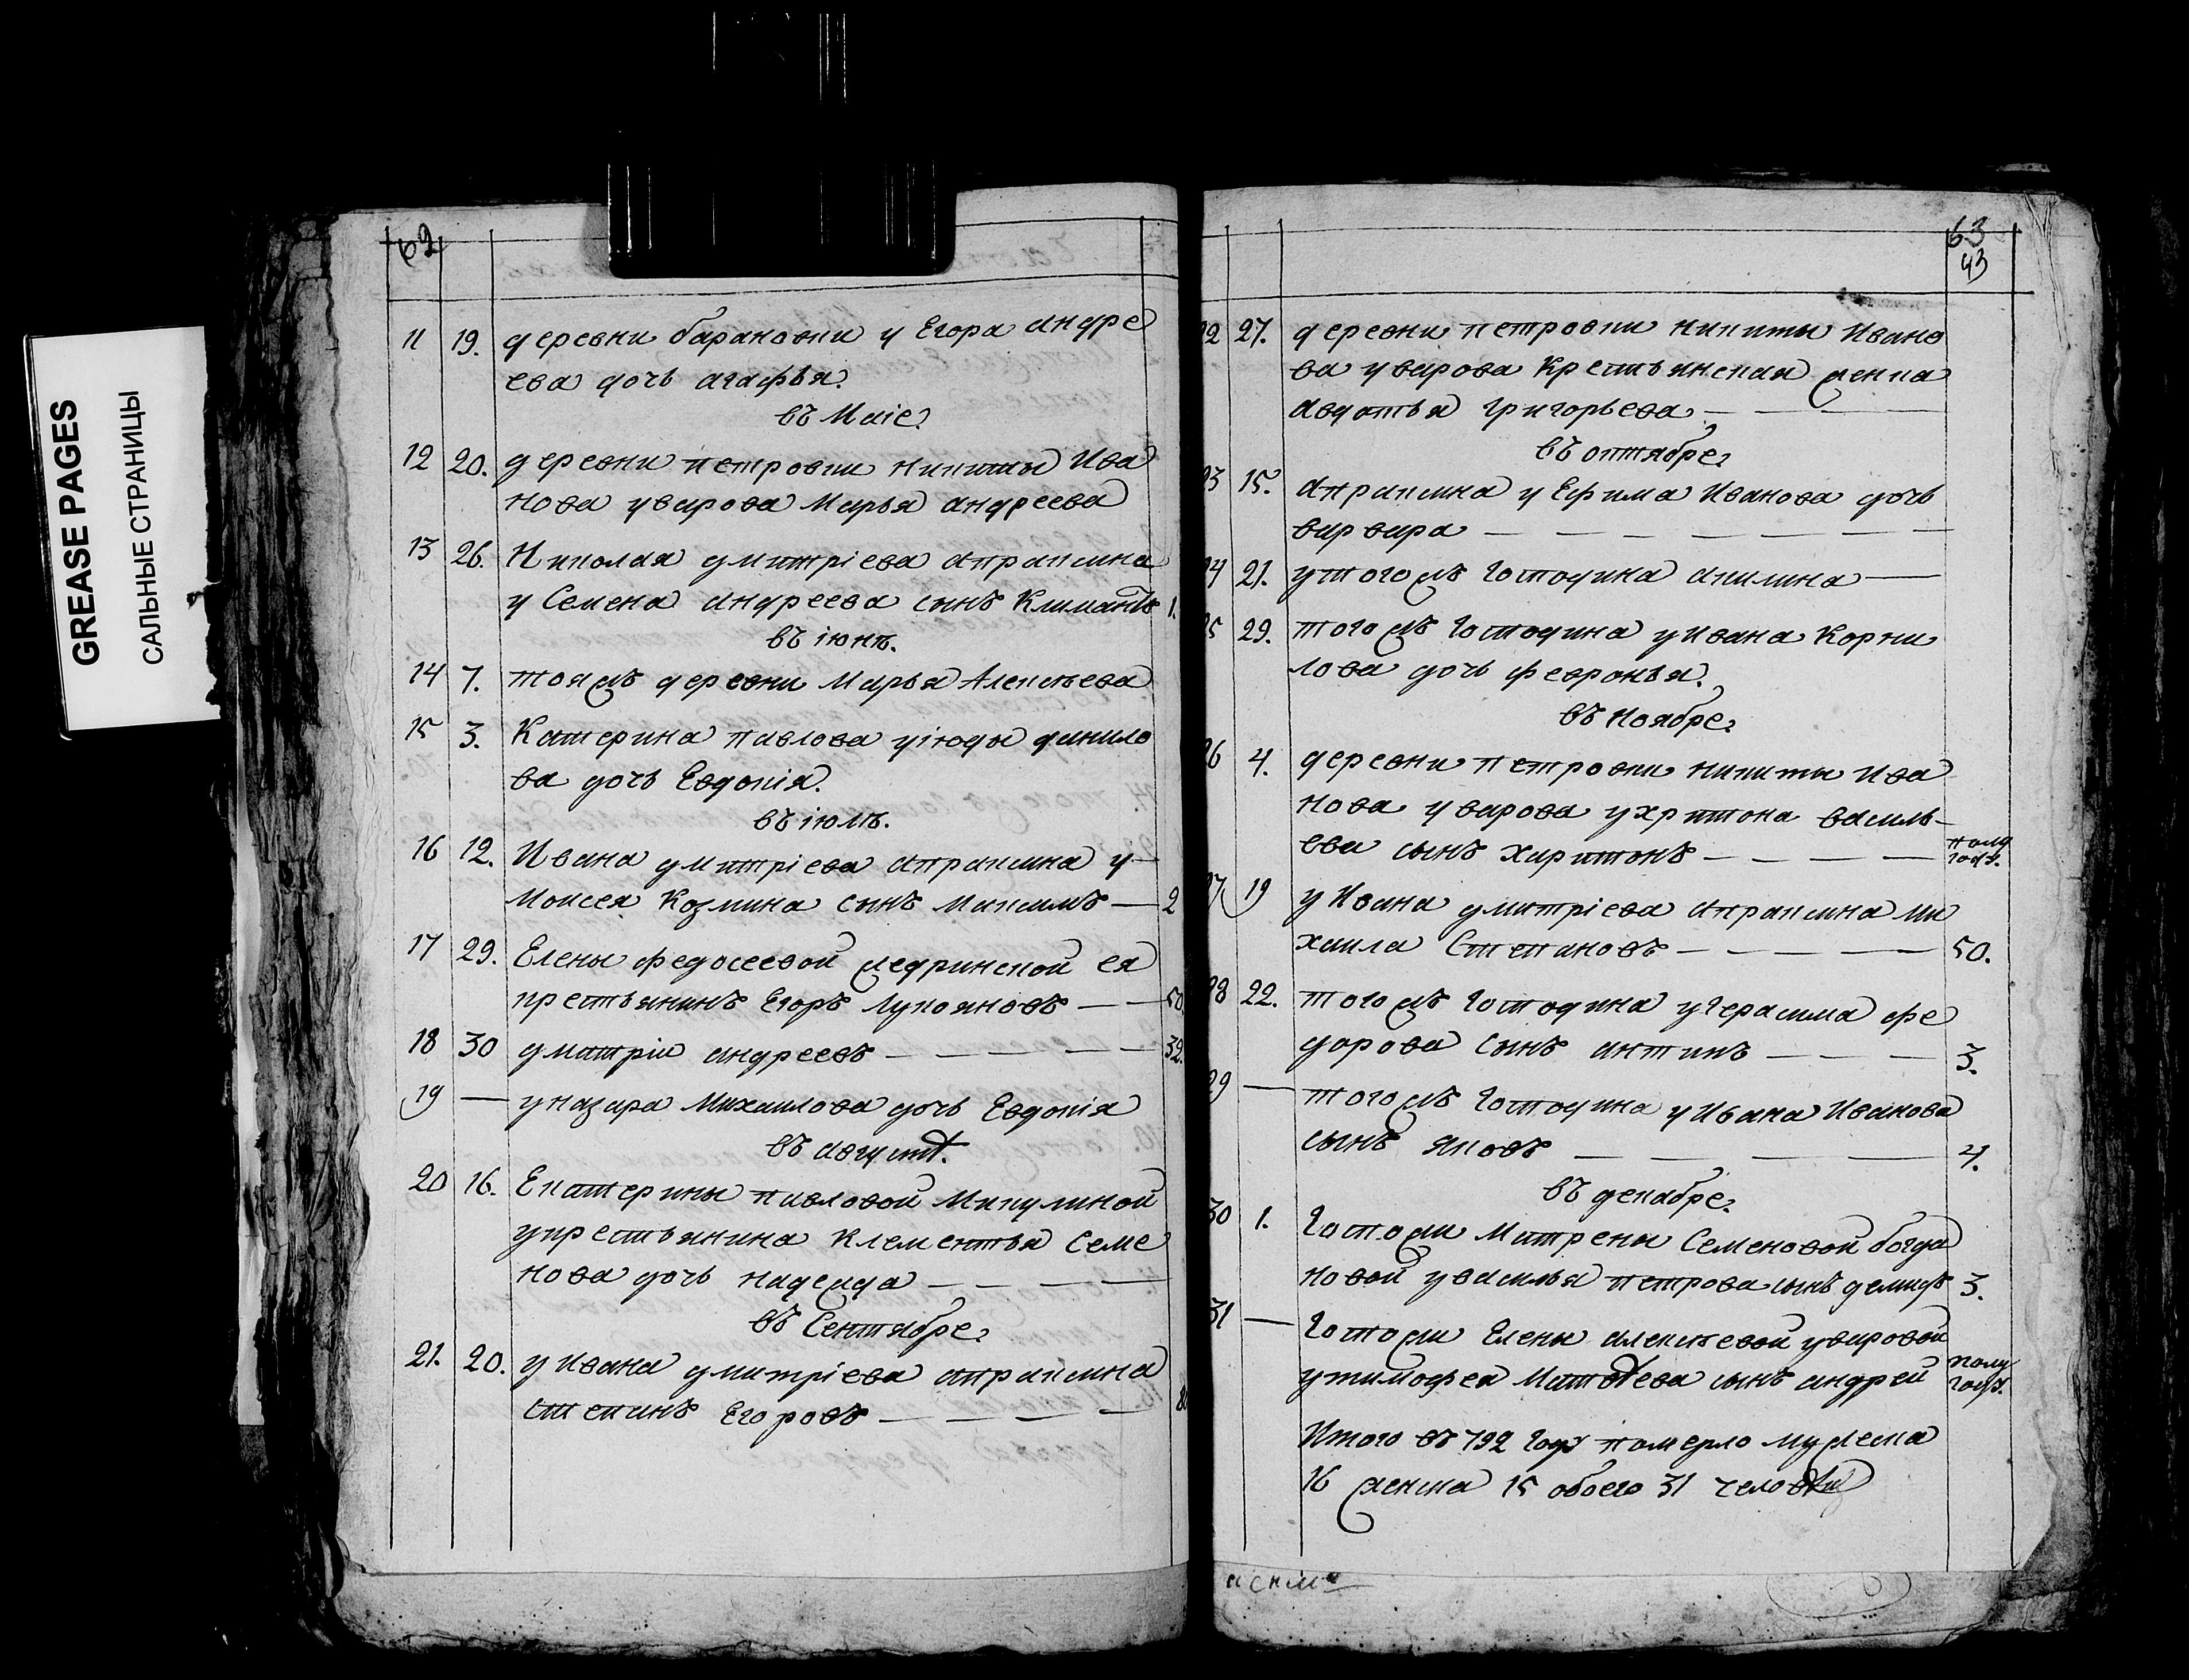 GREASE PAGES
САЛЬНЫЕ СТРАНИЦЫ
62
11 19. деревни барановки у Егора андре
ева дочь агафья.
въ Маіе.
12 20. деревни петровки никиты Ива
нова уварова Марья андреева
13 26. Николая дмитріева апраксина
у Семена андреева сынъ Климантъ 1.
въ іюнѣ.
14 7. тояжъ деревни Марья Алексѣева
15 3. Катерина павлова уіюды данило
ва дочь Евдокія.
въ іюлѣ.
16 12. Ивана дмитріева апраксина у
Моисея Козмина сынъ Максимъ — 2
17 29. Елены федосеевой жедринской ея
крестьянинъ Егоръ Лукояновъ — — 50
18 30 дмитрій андреевъ — — — — — 32.
19 — уназара Михаилова дочь Евдокія
въ августѣ.
20 16. Екатерины павловой Микулиной
укрестьянина Клементья Семе
нова дочь надежда — — — —
въ Сентябре.
21. 20. у Ивана дмитріева апраксина
степанъ Егоровъ — — — — 8
63
43
22 27. деревни петровки никиты Ивано
ва уварова Крестьянская женка
авдотья григорьева — — — —
въ октябре.
23 15. апраксина у Ефима Иванова дочь
варвара — — — — — — —
24 21. утогожъ Господина акилина —
25 29. тогожъ Господина уИвана Корни
лова дочь февронья.
въ Ноябре.
26 4. деревни петровки никиты Ива
нова уварова ухритона василь-
ева сынъ харитонъ — — — — полу
году.
27 19 у Ивана дмитріева апраксина ми
хаила Степановъ — — — — 50.
28 22. тогожъ Господина угерасима фе
дорова сынъ антипъ — — — 3.
29 — тогожъ Господина у Ивана Иванова
сынъ яковъ — — — — 4.
въ декабре.
30 1. Госпожи Матрены Семеновой богда
новой увасилья петрова сынъ демидъ 3.
31 — Госпожи Елены алексѣевой уваровой
утимофея Матвѣева сынъ андрей полу
году.
Итого въ 792 году померло мужеска
16 женска 15 обоего 31 человѣкъ